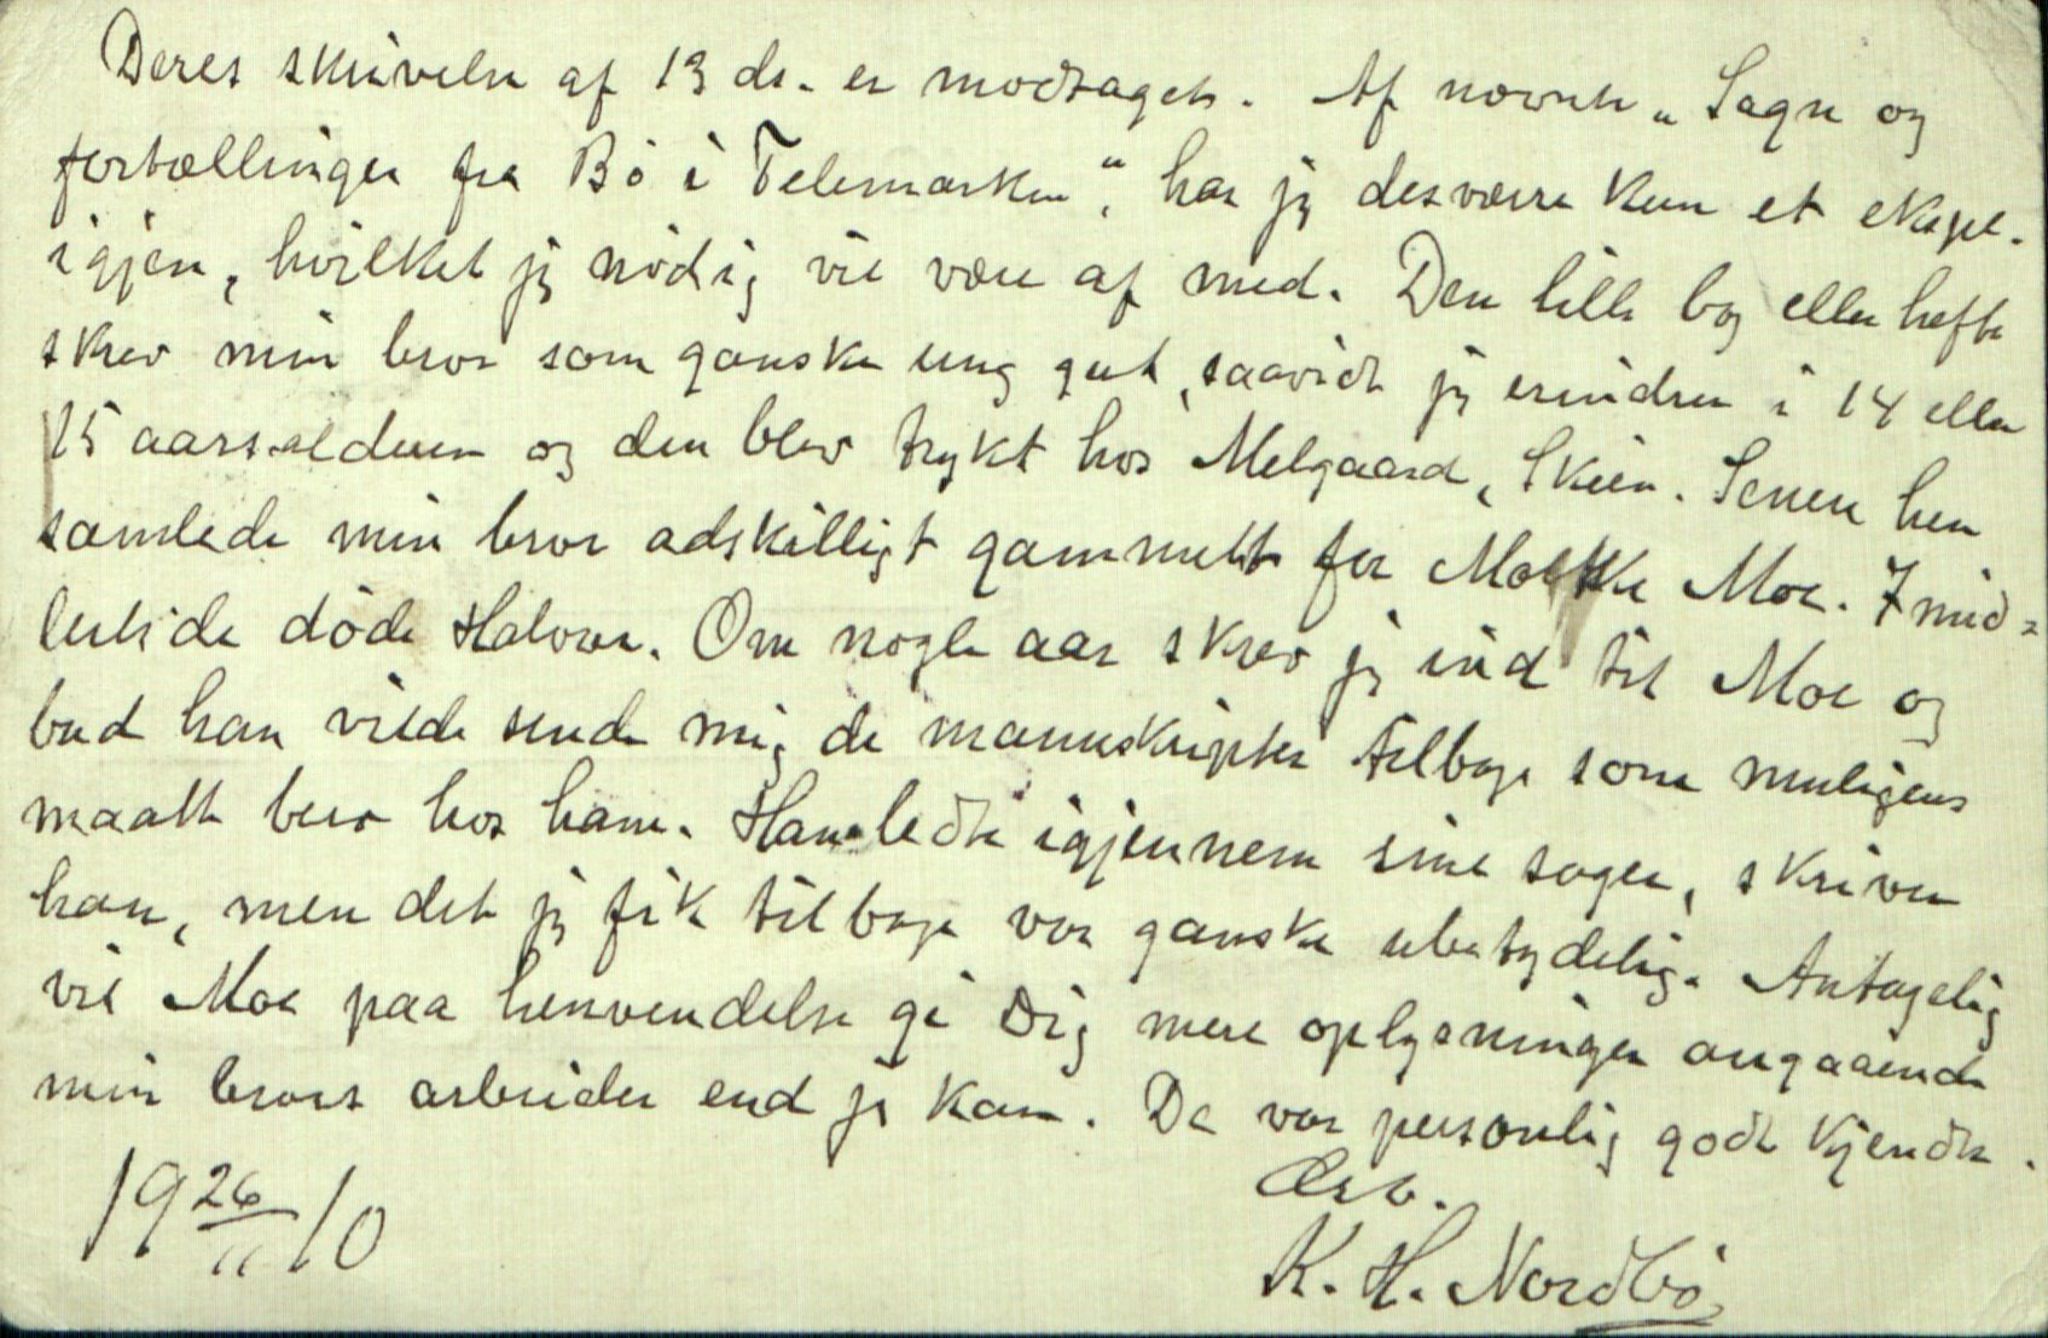 Deres skrivelse af 13 ds. er modtaget. Af nævnte „Sagn og
fortællinger fra Bö i Telemarken“, har jeg desværre kun et ekspl.
igjen, hvilket jeg nödig vil være af med. Den lille bog eller hefte
skrev min bror som ganske ung gut, saavidt jeg erindrer i 14 eller
15 aarsalderen og den blev trykt hos Melgaard, Skien. Senere hen
samlede min bror adskilligt gammelt for Moltke Moe. Imid=
lertide döde Halvor. Om nogle aar skrev jeg ind til Moe og
bad han vilde sende mig de manuskripter tilbage som muligens
maatte bero hos ham. Han ledte igjennem sine sager, skriver
han, men det jeg fik tilbage var ganske ubetydelig. Antagelig
vil Moe paa henvendelse gi Dig mere oplysninger angaaende
min brors arbeider end jeg kan. De var personlig godt kjendte.
Ærb.
19 26/11 10
K. H. Nordbö